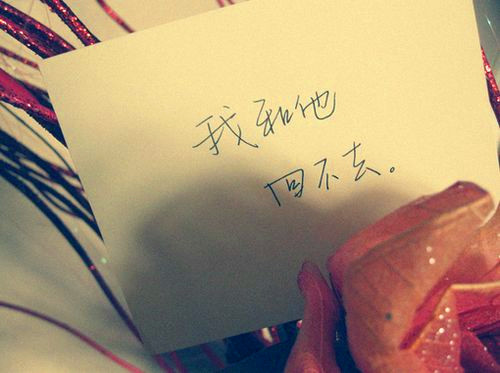 我和他
回不去。